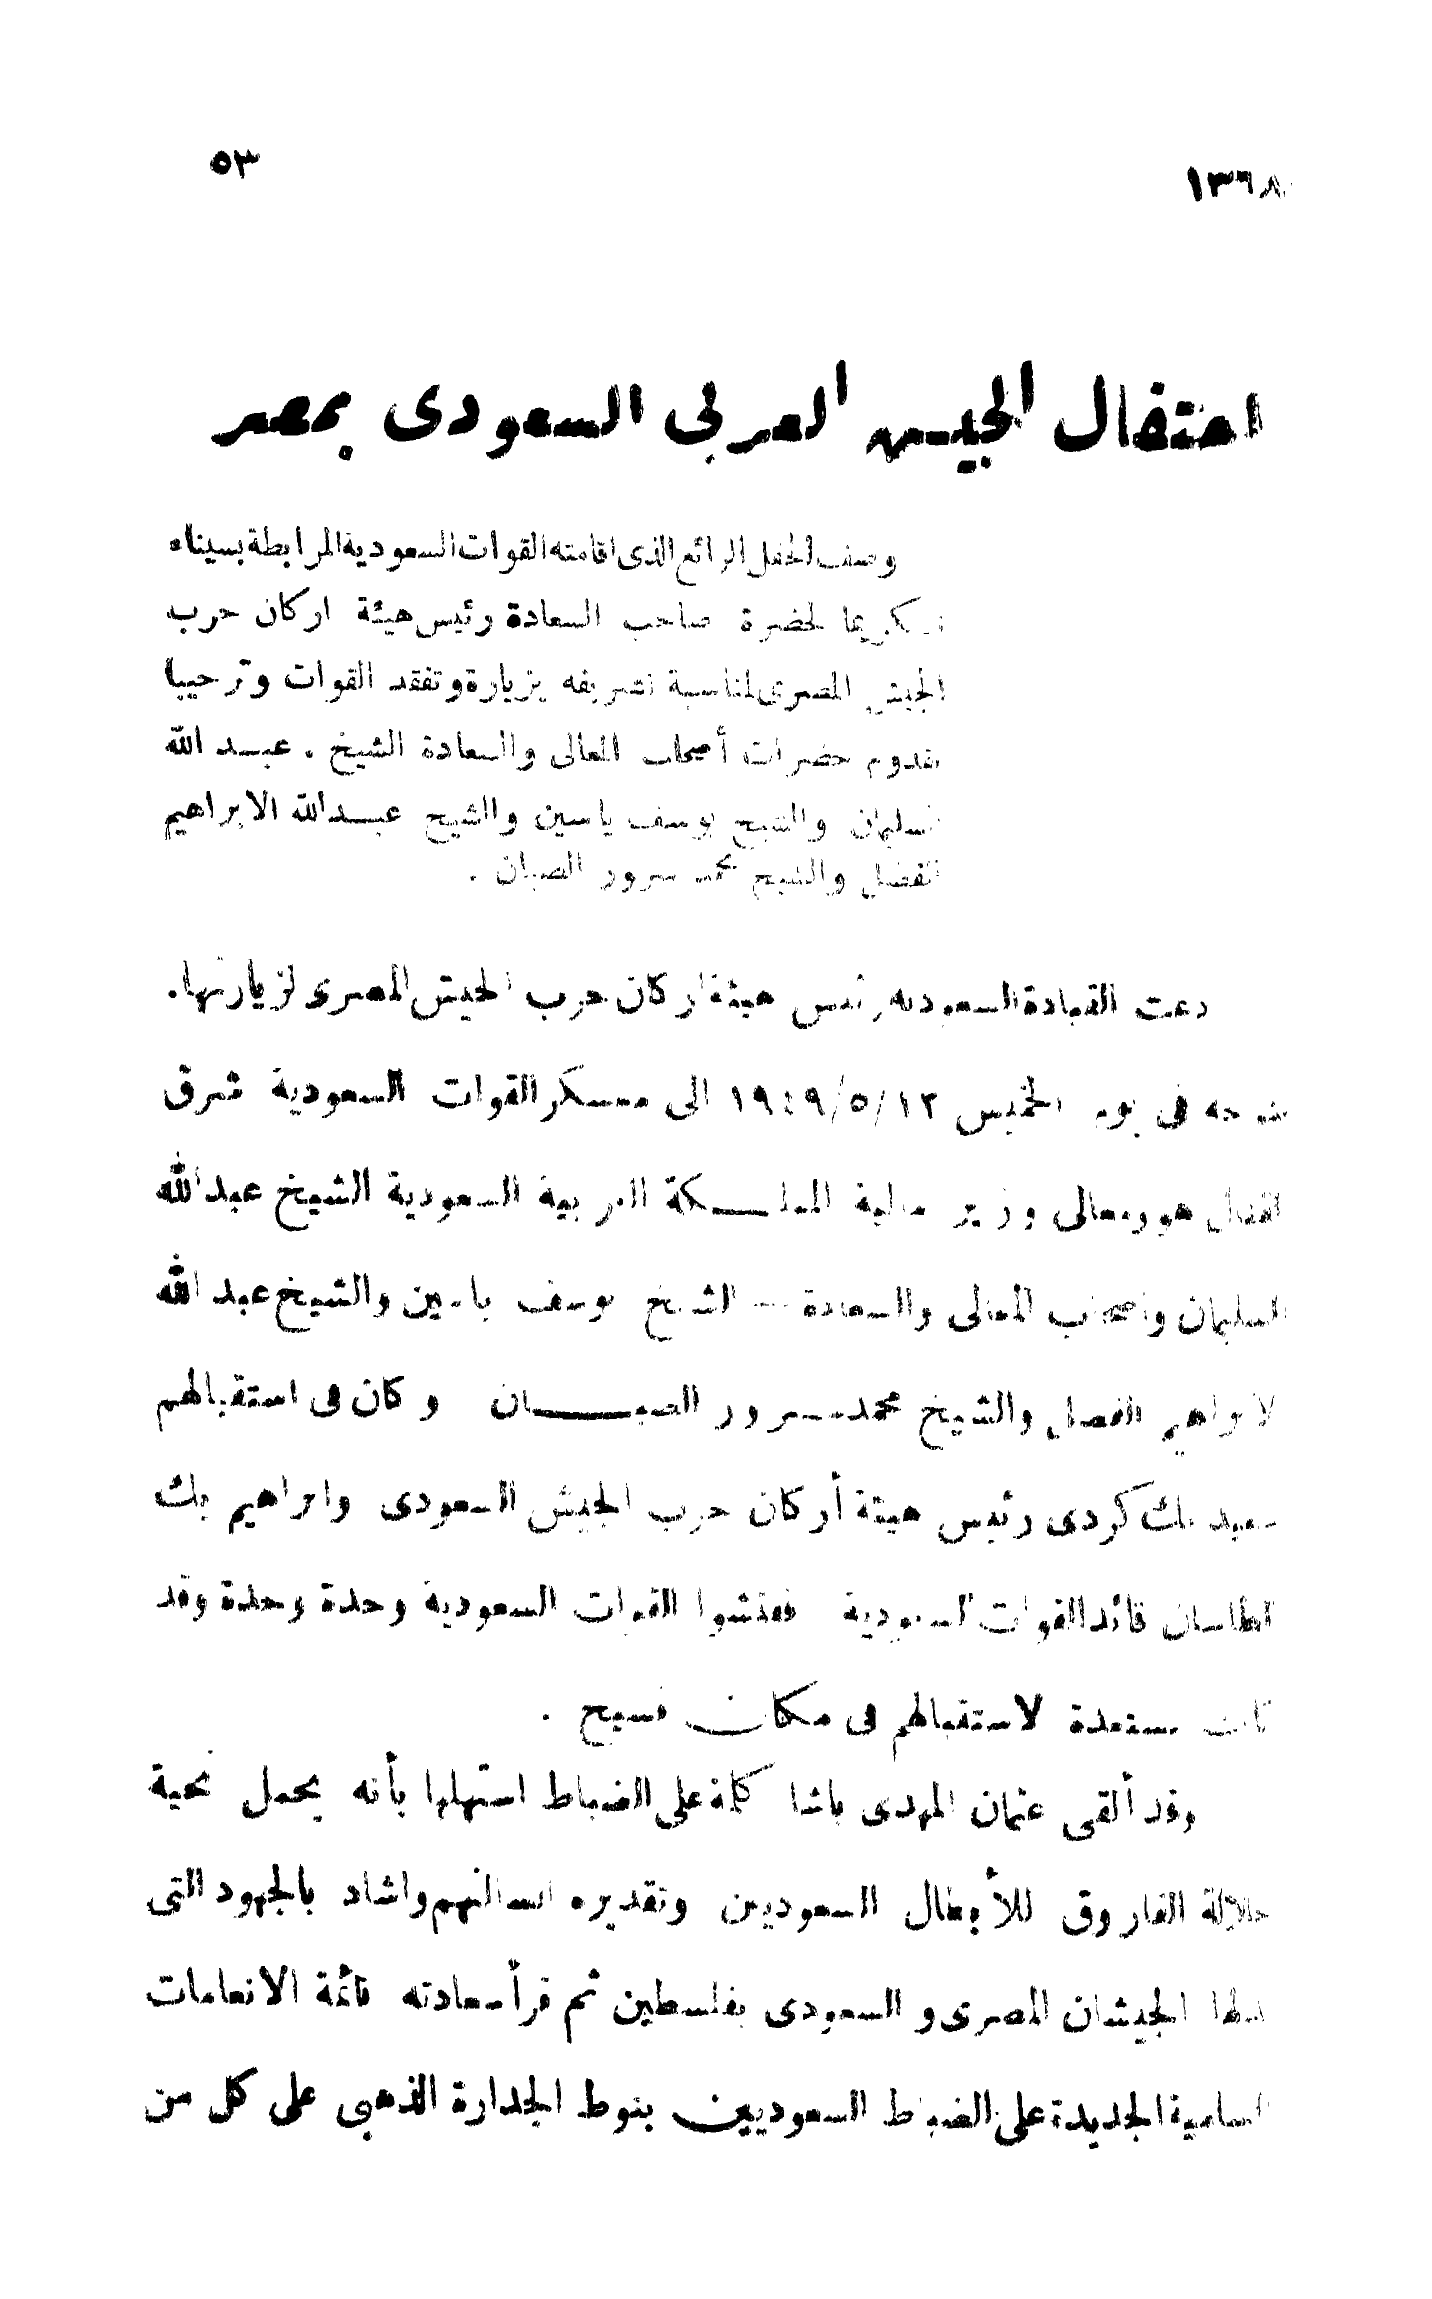 ١٣٦٨
٥٣
احتفال الجيش العربى السعودى بمصر
وصف الحفل الرائع الذى اقامته القوات السعودية المرابطة بسيناء
تكريما لحضرة صاحب السعادة رئيس هيئة اركان حرب
الجيش المصرى لمناسبة تشريفه بزيارة وتفقد القوات وترحيبا
بقدوم حضرات أصحاب المعالى والسعادة الشيخ . عبد الله
السليمان والشيخ يوسف ياسين والشيخ عبد الله الابراهيم
الفضل والشيخ محمد سرور الصبان .
دعت القيادة السعودية رئيس هيئة اركان حرب الجيش المصرى لزيارتها.
فى يوم الخميس ١٩٤٩/٥/١٢ الى معسكر القوات السعودية شرق
القنال هو ومعالى وزير مالية المملكة العربية السعودية الشيخ عبد الله
السليمان واصحاب المعالى والسعادة — الشيخ يوسف ياسين والشيخ عبد الله
الابراهيم الفضل والشيخ محمد سرور الصبان وكان فى استقبالهم
سعيد بك كردى رئيس هيئة أركان حرب الجيش السعودى وابراهيم بك
الطاسان قائد القوات السعودية ففتشوا القوات السعودية وحدة وحدة وقد
كانت مستعدة لاستقبالهم فى مكان فسيح .
وقد ألقى عثمان المهدى باشا كلمة على الضباط استهلها بأنه يحمل تحية
جلالة الفاروق للأبطال السعوديين وتقديره لبسالتهم واشاد بالجهود التى
بذلها الجيشان المصرى و السعودى بفلسطين ثم قرأ سعادته قائمة الانعامات
السامية الجديدة على الضباط السعوديين بنوط الجدارة الذهبى على كل من